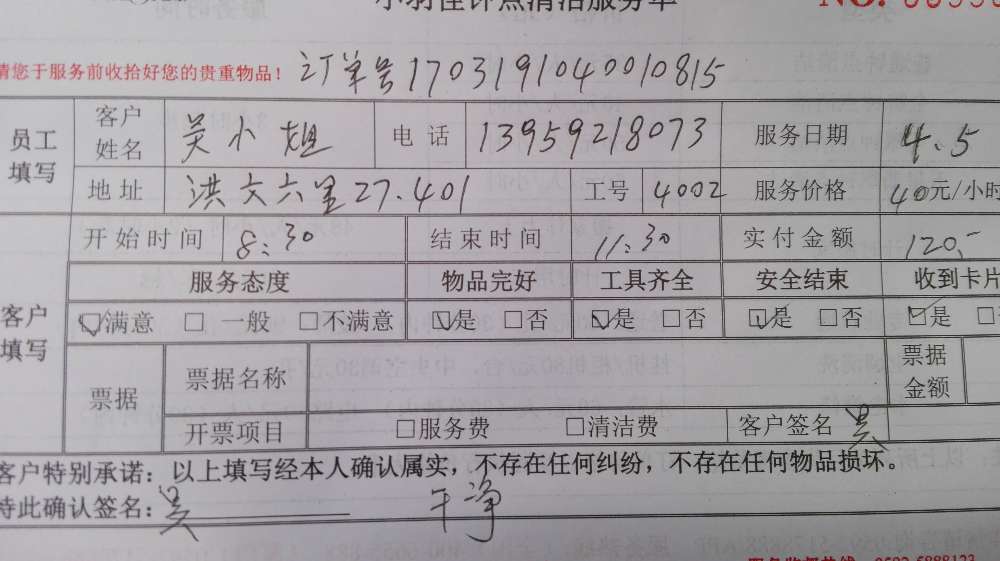 钟点清洁服务单 NO.
请您于服务前收拾好您的贵重物品! 订单号1703191040010815
员工填写 客户姓名 吴小姐 电话 13959218073 服务日期 4.5
地址 洪文六里27.401 工号 4002 服务价格 40元/小时
开始时间 8:30 结束时间 11:30 实付金额 120,-
客户填写 服务态度 物品完好 工具齐全 安全结束 收到卡片
☑满意 □一般 □不满意 ☑是 □否 ☑是 □否 ☑是 □否 ☑是 □
票据 票据名称 票据金额
开票项目 □服务费 □清洁费 客户签名 吴
客户特别承诺：以上填写经本人确认属实，不存在任何纠纷，不存在任何物品损坏。
特此确认签名：吴 干净